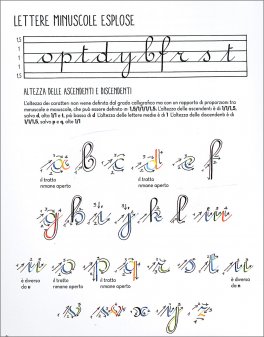 LETTERE MINUSCOLE ESPLOSE
1,5
1
1
1,5
o p t d y b f r s t
ALTEZZA DELLE ASCENDENTI E DISCENDENTI
L'altezza dei caratteri non viene definita dal grado calligrafico ma con un rapporto di proporzioni tra
minuscole e maiuscole, che può essere definito in 1,5/1/1/1/1,5. L'altezza delle ascendenti è di 1/1/1,5,
salvo d, alta 1/1 e t, più bassa di d. L'altezza delle lettere medie è di 1. L'altezza delle discendenti è di
1/1/1,5, salvo p e q, alte 1/1
a b c d e f
il tratto
rimane aperto
il tratto
rimane aperto
g h i j k l m
n o p q r s t u
è diversa
da n
il tratto
rimane aperto
il tratto
rimane aperto
è diversa
da n
v w x y z